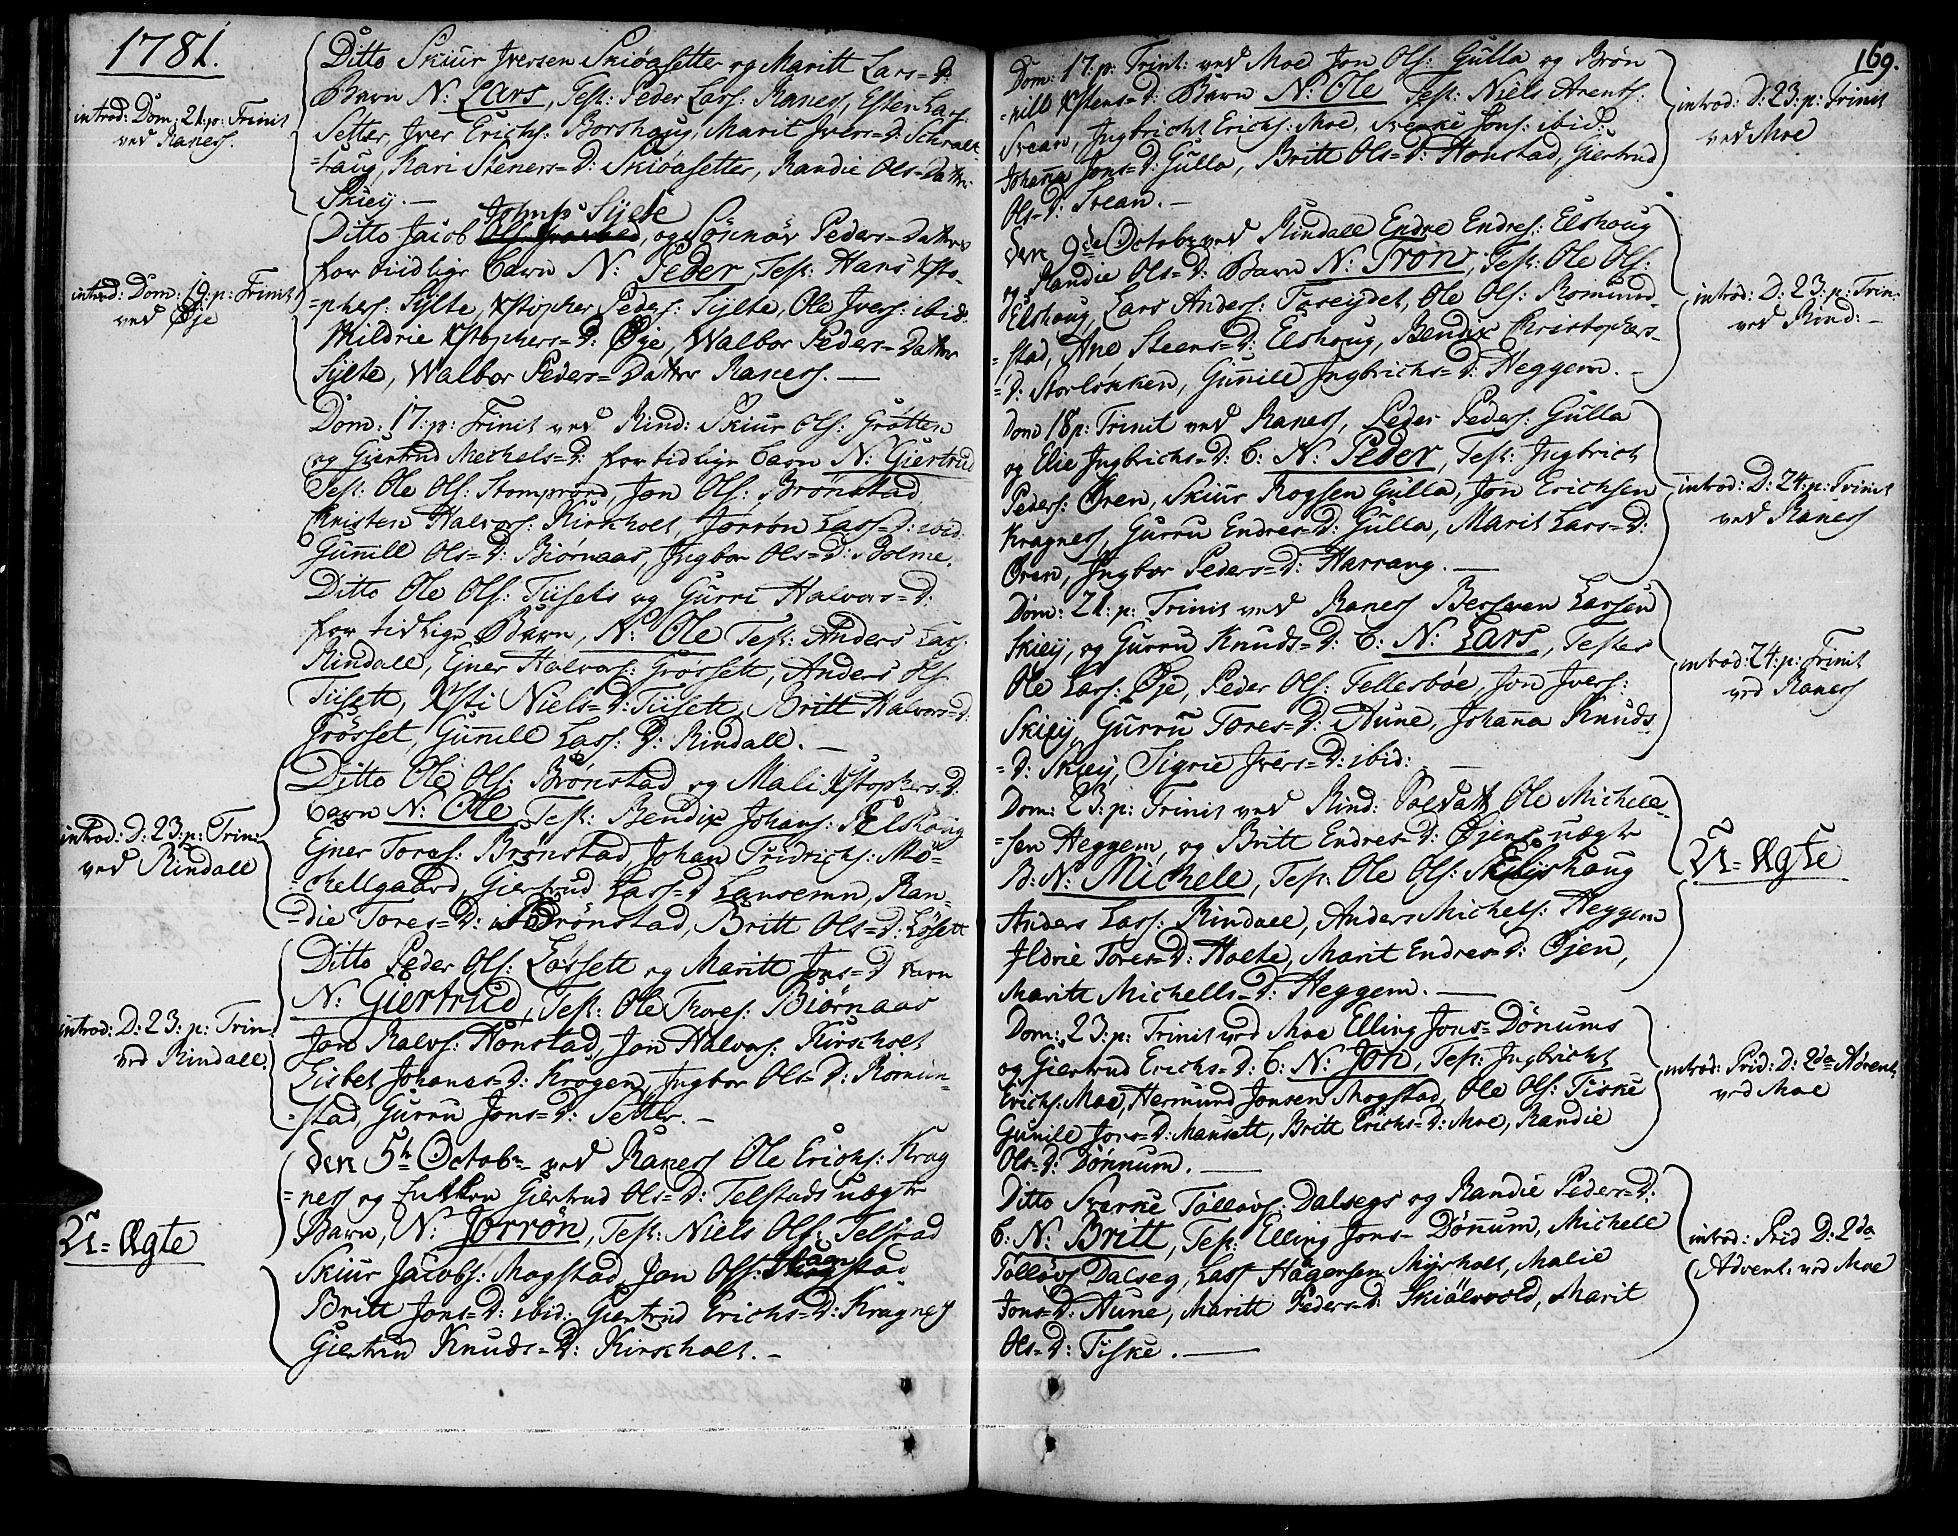 1781.
Ditto Skiur Iversen Skiøasetter og Maritt Lars=D:
Barn N: Lars, Test: Peder Lars: Raness, Esten Lars:
Setter, Iver Erichs: Borshaug, Marit Ivers=D:
=haug, Kari Steners=D: Skiøasetter, Randie Ols=Datter
Skiej. —
introd: Dom: 21: p: Trinit
ved Raness.
Johns: Sylte
Ditto Jacob, og Sønnøv Peders=Datters
for tiidlige barn N: Peder, Test: Hans Xsto-
=phers: Sylte, Xstopher Peders: Sylte, Ole Ivers: ibid:
Mildrie Xstophers=D: Øje, Walbor Peders=Datter
Sylte, Walbor Peders=Datter Raness. —
introd: Dom: 19: p: Trinit
ved Øje
Dom: 17: p: Trinit ved Rind: Skiur Ols: Grøtten
og Giertrud Mechels=D: for tidlige barn N: Giertrud
Test: Ole Ols: Stomprørd, Jon Ols: Brønstad
Christen Halvors: Kirkholt, Jorrøn Lass=D: ibid:
Gunnill Ols=D: Biørnaas, Ingbor Ols=D: Bolme.
Ditto Ole Ols: Tiisets og Gurri Halvors=D:
for tidlige Barn, N: Ole Test: Anders Lars:
Rindall, Ejner Halvors: Grøssett, Anders Ols:
Tiisett, Xsti Niels=D: Tiisett, Britt Halvors=D:
Grøsset, Gunnill Lass: D: Rindall. —
Ditto Ole Ols: Brønstad og Mali Xstophers:D:
barn N: Ole Test: Bendix Johans: Elshoug
Ejner Tores: Brønstad, Johan Fridrichs: Mø-
=chellgaard, Giertrud Lass=D Langemn, Ran-
=die Tores=D: Brønstad, Britt Ols=D: Løsett
introd: D: 23: p: Trin:
ved Rindall
Ditto Peder Ols: Løssett og Maritt Jons=D barn
N: Giertrud, Test: Ole Thores: Biørnaas
Jon Ralvs: Honstad, Jon Halvors: Kirscholt
Lisbet Johanes=D: Krogen, Ingbor Ols=D: Romun-
=stad, Gurru Jons=D: Setter. —
introd: D: 23: p: Trin:
ved Rindall.
Den 5te Octobr ved Raness Ole Erichs: Krag
=ness og Giertrud Ols=D: Telstads uægte
Barn, N: Jorrøn, Test: Niels Ols: Telstad
Skiur Jacobs: Mogstad, Jon Ols:
Britt Jons=D: ibid: Giertrud Erichs=D: Kragnes
Giertrud Knuds=D: Kirscholt. —
U=Ægte
169.
Dom: 17: p: Trinit: ved Moe Jon Ols: Gulla og Brøn
=nild Xstens=D: Barn N: Ole Test: Niels Arents:
Svean, Ingbricht Erichs: Moe, Sverke Jons: ibid:
Johanna Jons=D: Gulla, Britt Ols=D: Honstad, Giertrud
Ols=D: Svean. —
introd: D: 23: p: Trinit
ved Moe
den 9de Octobr ved Rindall Endre Endres: Elshoug
og Randie Ols=D: Barn N: Tron, Test: Ole Ols:
Elshoug, Lars Anders: Toreydet, Ole Ols: Romund-
=stad, Ane Steens=D: Elshoug, Bendix Christophers-
=D: Storløkken, Gunnild Ingbrichs=D: Heggem. —
introd: D: 23: p: Trin:
ved Rind: —
Dom 18 p: Trinit ved Raness, Peder Peders: Gulla
og Elie Ingbrichs=D: b: N: Peder, Test: Ingbrict
Peders: Øren, Skiur Rogsen Gulla, Jon Erichsen
Kragness, Gurru Endres=D: Gulla, Marit Lars=D:
Øren, Ingbor Peders=D: Harrang. —
introd: D: 24: p: Trinit
ved Raness
Dom: 21: p: Trinit ved Raness Larsen
Skiej, og Gurru Knuds=D: b: N: Lars, Testes
Ole Lars: Øje, Peder Ols: Tellesbøe, Jon Ivers:
Skiej, Gurru Tores=D: Aune, Johanna Knuds
=D: Skiej, Sigrie Ivers=D: ibid:
introd: 24: p: Trinit
ved Raness
Dom: 23: p: Trinit ved Rind: Soldatt Ole Michels
=sen Heggem, og Britt Endres=D: Øjens uægte
B: N: Michell, Test: Ole Ols:
Anders Lass: Rindall, Anders Michels: Heggem
Ildrie Tores=D: Holte, Marit Endres=D: Øjen,
Maritt Michells=D: Heggem. —
U=Ægte
Dom: 23: p: Trinit ved Moe Elling Jons=Dønums
og Giertrud Erichs=D: b: N: Jon, Test: Ingbricht
Erichs: Moe, Hermund Jonsen Mogstad, Ole Ols: Tiske
Gunild Jons=D: Mansett, Britt Erichs=D: Moe, Randie
Ols=D: Dønnum. —
introd: Prid: D: 2da Advent:
ved Moe
Ditto Sverke Tolløvs: Dalsegs og Randie Peders=D:
b: N: Britt, Test: Elling Jons=Dønnum, Michell
Tolløvs: Dalseg, Lass Hagensen Myrholt, Malie
Jons=D: Aune, Maritt Peders=D: Skiølsvold, Marit
Ols=D: Tiske. —
introd: Prid D: 2da
Advent: ved Moe